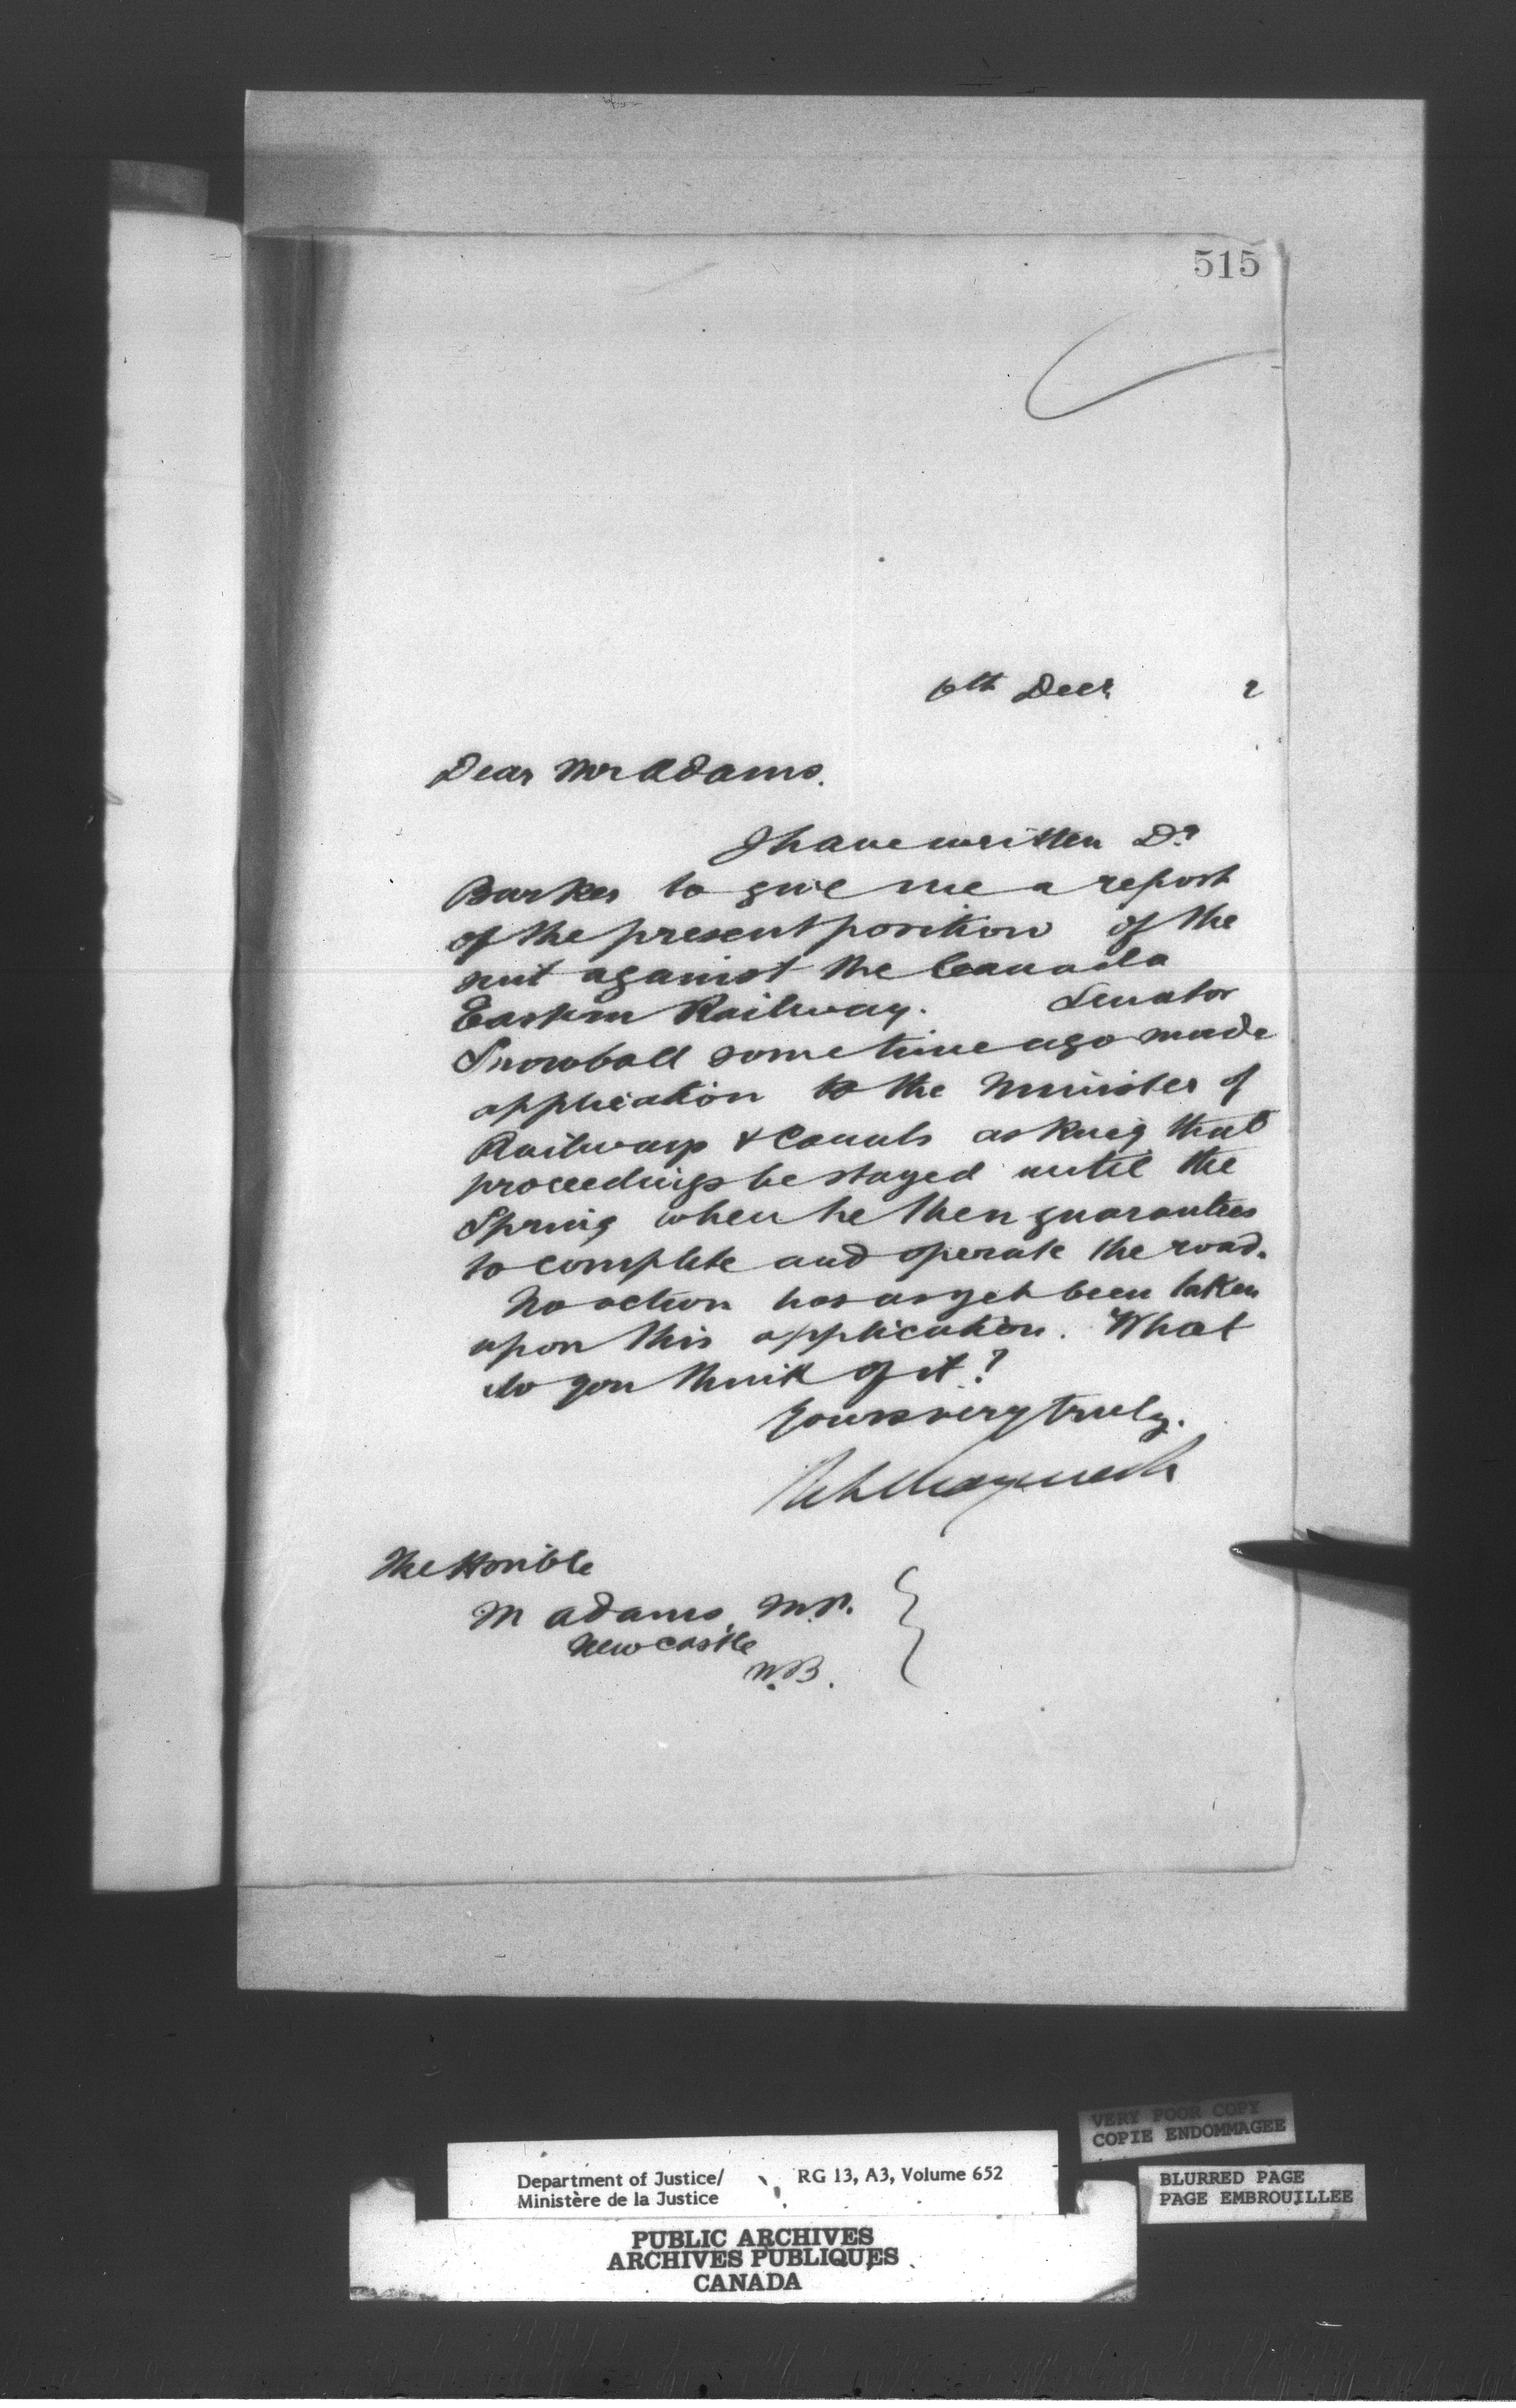 515
6th Decr 2
Dear Mr Adams.
I have written Dr
Barker to give me a report
of the present position of the
suit against the Canada
Eastern Railway. Senator
Snowball some time ago made
application to the Minister of
Railways & Canals asking that
proceedings be stayed until the
Spring when he then guarantees
to complete and operate the road.
No action has as yet been taken
upon this application. What
do you think of it?
Yours very truly.
The Honible
M Adams, M.P.
Newcastle
N.B.
VERY POOR COPY
COPIE ENDOMMAGEE
Department of Justice/ RG 13, A3, Volume 652
Ministère de la Justice
BLURRED PAGE
PAGE EMBROUILLEE
PUBLIC ARCHIVES
ARCHIVES PUBLIQUES
CANADA